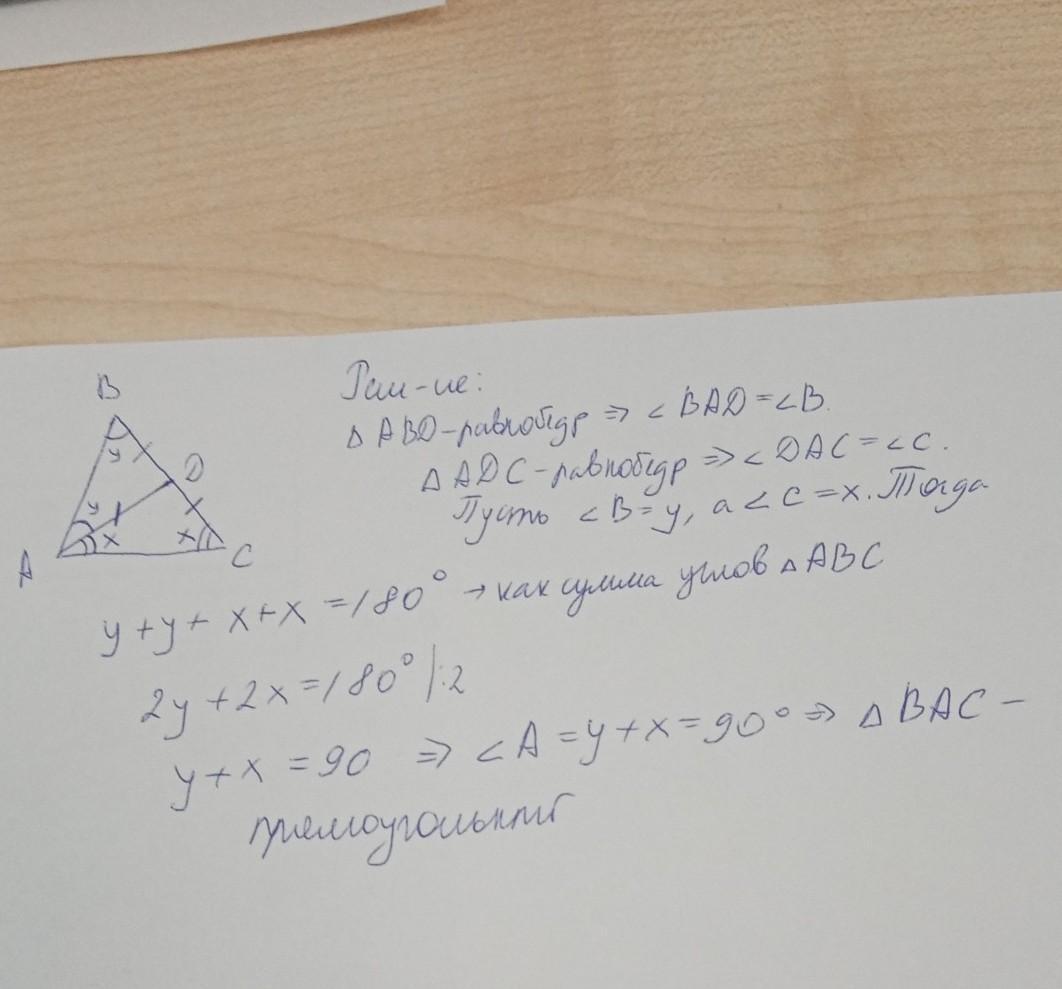 B
y
D
y
x
x
A
C
Реш-ие:
△ ABD-равнобедр ⇒ ∠ BAD = ∠B.
△ ADC-равнобедр ⇒ ∠ DAC = ∠C.
Пусть ∠B=y, а ∠C=x. Тогда
y+y+x+x=180° → как сумма углов △ABC
2y+2x=180° |:2
y+x=90 ⇒ ∠A=y+x=90° ⇒ △BAC-
прямоугольный